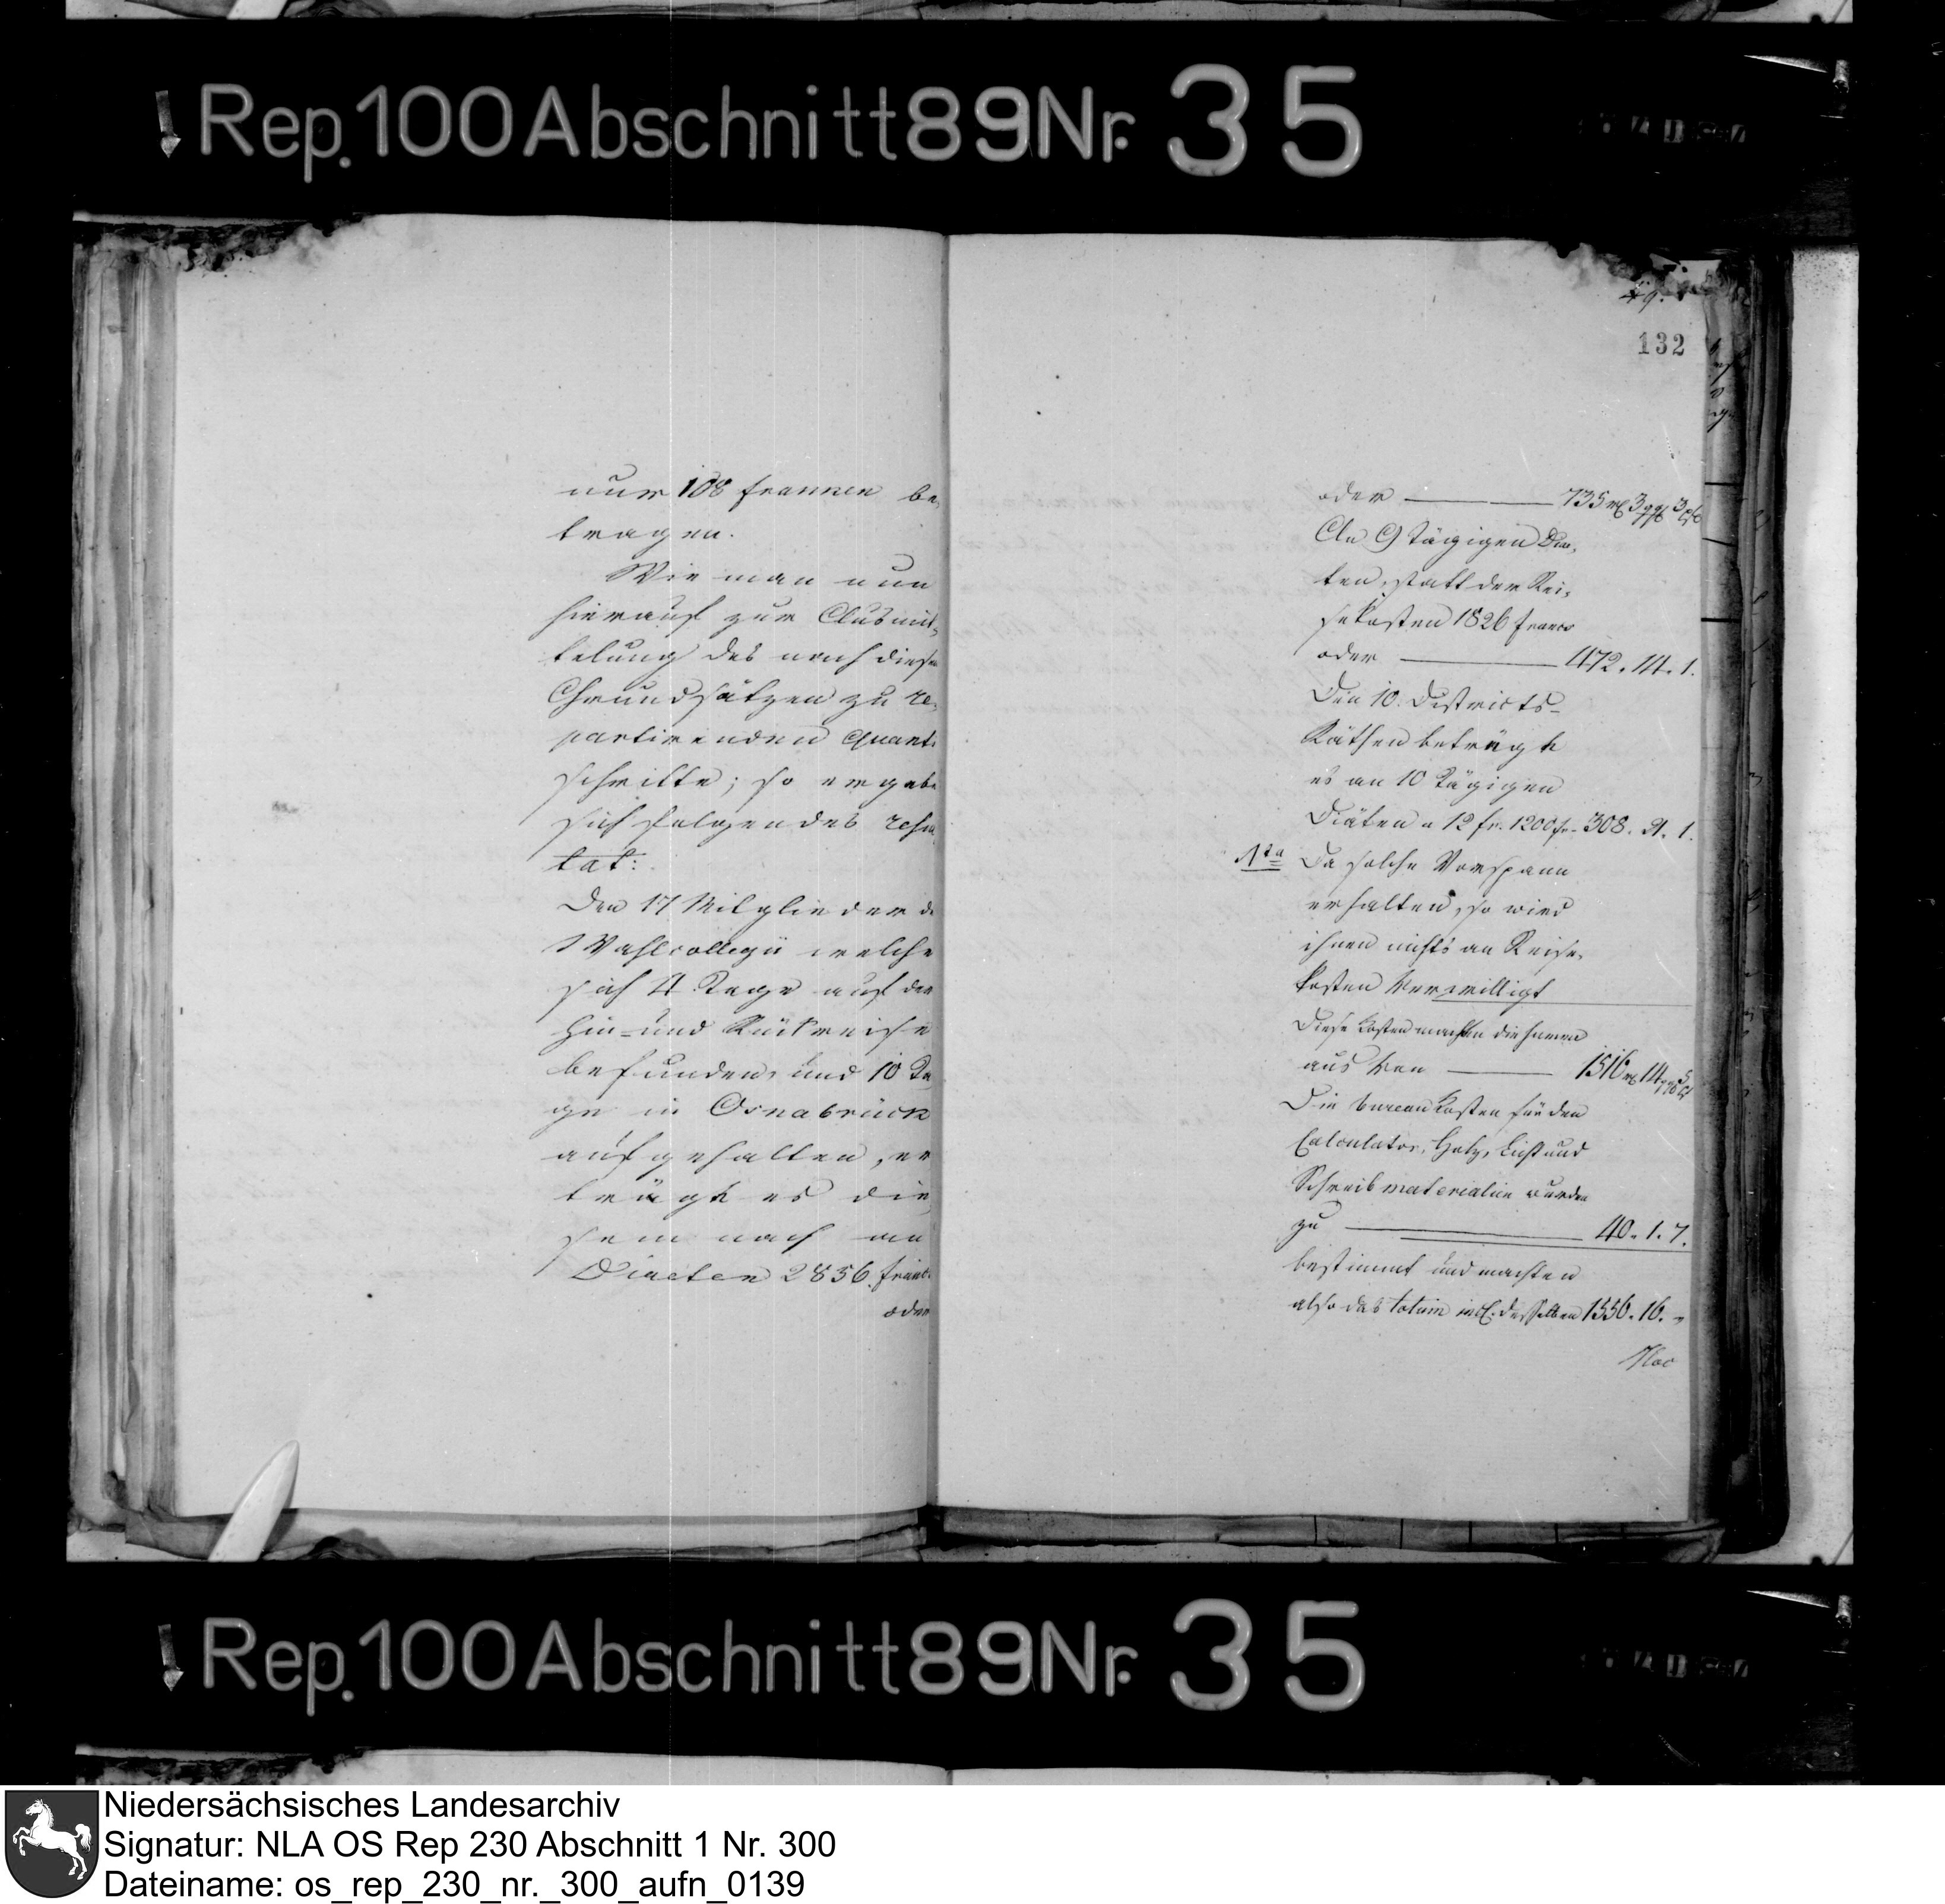 Rep. 100 Abschnitt 89 Nr. 35
nur 108 francen be-
tragen.
Wie man nun
hierauf zur Ausmit-
telung des nach diesen
Grundsätzen zu re-
partirenden Quanti
schritte; so ergabe
sich folgendes resul
tat:
Den 17 Mitglieder d
Wahlcollegii welche
sich 4 Tage auf der
Hin- und Rückreise
befunden, und 10 Ta
ge in Osnabrück
aufgehalten,
trägt es die
sem nach an
Diaeten 2856. franc.
oder
49.
132
oder ——— 735 rℓ 3 ggl 3
An 9 tägigen Diae-
ten, statt der Rei-
sekosten 1826 francs
oder ——— 472. 14. 1.
Den 10. Districts-
Räthen beträgt
es an 10 tägigen
Diäten a 12 fr. 1200 fr. 308. 21. 1.
Nta Da solche Vorspann
erhalten, so wird
ihnen nichts an Reise-
kosten verwilligt
Diese Kosten machten die Summe
aus von ——— 1516 rℓ 14 ggl 5
Die bureau Kosten für den
Calculator, Holz, Licht und
Schreibmaterialien wurden
zu ——— 40. 1. 7.
bestimmt und machten
also das totum incl. desselben 1556. 16. -
Rep. 100 Abschnitt 89 Nr. 35
Niedersächsisches Landesarchiv
Signatur: NLA OS Rep 230 Abschnitt 1 Nr. 300
Dateiname: os_rep_230_nr._300_aufn_0139